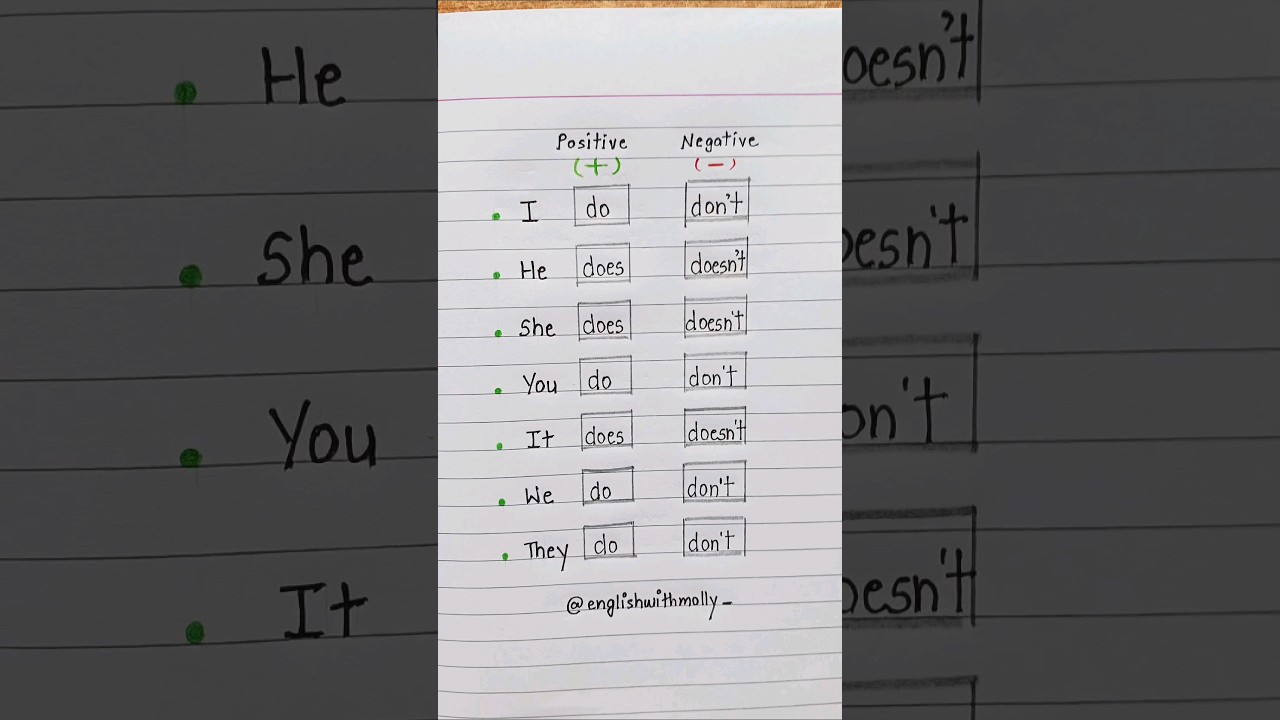 Positive Negative
(+) (-)
• I do don't
• He does doesn't
• She does doesn't
• You do don't
• It does doesn't
• We do don't
• They do don't
@englishwithmolly_
• He
• She
• You
• It
oesn't
oesn't
on't
oesn't